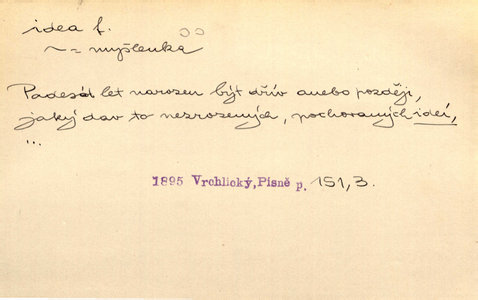 idea f.
~ = myšlenka
Padesát let narozen být dřív anebo později,
jaký dav to nezrozených, pochovaných ideí,
...
1895 Vrchlický, Písně p. 151,3.